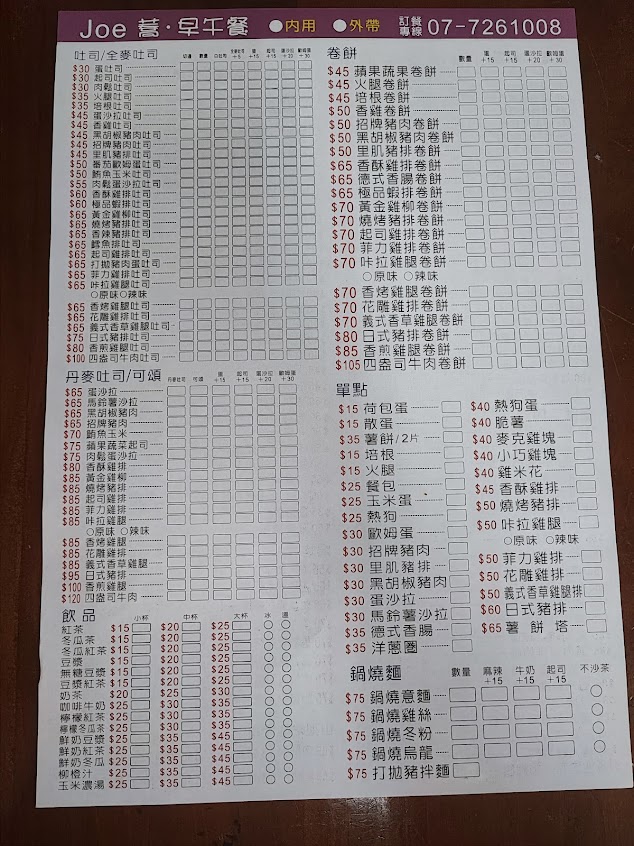 Joe 蒿·早午餐 ●內用 ●外帶 訂餐專線 07-7261008
吐司/全麥吐司
切邊 數量 白吐司 全麥吐司+5 蛋+15 起司+15 蛋沙拉+20 歐姆蛋+30
$30 蛋吐司
$30 起司吐司
$30 肉鬆吐司
$35 火腿吐司
$35 培根吐司
$45 蛋沙拉吐司
$45 香雞吐司
$45 黑胡椒豬肉吐司
$45 招牌豬肉吐司
$45 里肌豬排吐司
$50 蕃茄歐姆蛋吐司
$50 鮪魚玉米吐司
$55 肉鬆蛋沙拉吐司
$60 香酥雞排吐司
$60 極品蝦排吐司
$65 黃金雞柳吐司
$65 燒烤豬排吐司
$65 香辣豬排吐司
$65 鱈魚排吐司
$65 起司雞排吐司
$65 打拋豬肉蛋吐司
$65 菲力雞排吐司
$65 咔拉雞腿吐司
○原味 ○辣味
$65 香烤雞腿吐司
$65 花雕雞排吐司
$65 義式香草雞腿吐司
$75 日式豬排吐司
$80 香煎雞腿吐司
$100 四盎司牛肉吐司
丹麥吐司/可頌
丹麥吐司 可頌 蛋+15 起司+15 蛋沙拉+20 歐姆蛋+30
$65 蛋沙拉
$65 馬鈴薯沙拉
$65 黑胡椒豬肉
$65 招牌豬肉
$70 鮪魚玉米
$75 蘋果蔬菜起司
$75 肉鬆蛋沙拉
$80 香酥雞排
$85 黃金雞柳
$85 燒烤豬排
$85 起司雞排
$85 菲力雞排
$85 咔拉雞腿
○原味 ○辣味
$85 香烤雞腿
$85 花雕雞排
$85 義式香草雞腿
$95 日式豬排
$100 香煎雞腿
$120 四盎司牛肉
飲品 小杯 中杯 大杯 冰 溫
紅茶 $15 $20 $25
冬瓜茶 $15 $20 $25
冬瓜紅茶 $15 $20 $25
豆漿 $15 $20 $25
無糖豆漿 $15 $20 $25
豆漿紅茶 $15 $20 $25
奶茶 $20 $25 $30
咖啡牛奶 $25 $30 $35
檸檬紅茶 $25 $30 $35
檸檬冬瓜茶 $25 $30 $35
鮮奶豆漿 $25 $35 $45
鮮奶紅茶 $25 $35 $45
鮮奶冬瓜 $25 $35 $45
柳橙汁 $25 $35 $45
玉米濃湯 $25 $35 $45
卷餅
數量 蛋+15 起司+15 蛋沙拉+20 歐姆蛋+30
$45 蘋果蔬果卷餅
$45 火腿卷餅
$45 培根卷餅
$50 香雞卷餅
$50 招牌豬肉卷餅
$50 黑胡椒豬肉卷餅
$50 里肌豬排卷餅
$65 香酥雞排卷餅
$65 德式香腸卷餅
$65 極品蝦排卷餅
$70 黃金雞柳卷餅
$70 燒烤豬排卷餅
$70 起司雞排卷餅
$70 菲力雞排卷餅
$70 咔拉雞腿卷餅
○原味 ○辣味
$70 香烤雞腿卷餅
$70 花雕雞排卷餅
$70 義式香草雞腿卷餅
$80 日式豬排卷餅
$85 香煎雞腿卷餅
$105 四盎司牛肉卷餅
單點
$15 荷包蛋
$15 散蛋
$35 薯餅/2片
$15 培根
$15 火腿
$25 餐包
$25 玉米蛋
$25 熱狗
$30 歐姆蛋
$30 招牌豬肉
$30 里肌豬排
$30 黑胡椒豬肉
$30 蛋沙拉
$30 馬鈴薯沙拉
$35 德式香腸
$35 洋蔥圈
$40 熱狗蛋
$40 脆薯
$40 麥克雞塊
$40 小巧雞塊
$40 雞米花
$45 香酥雞排
$50 燒烤豬排
$50 咔拉雞腿
○原味 ○辣味
$50 菲力雞排
$50 花雕雞排
$50 義式香草雞腿排
$60 日式豬排
$65 薯餅塔
鍋燒麵 數量 麻辣+15 牛奶+15 起司+15 不沙茶
$75 鍋燒意麵
$75 鍋燒雞絲
$75 鍋燒冬粉
$75 鍋燒烏龍
$75 打拋豬拌麵